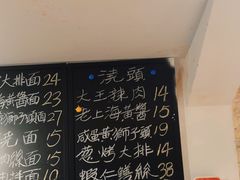 大排面24
黃醬面23
獅子頭面27
光面15
面15
澆頭
大王辣肉14
老上海黃醬15
咸蛋黃獅子頭19
蔥烤大排14
蝦仁鱔絲38